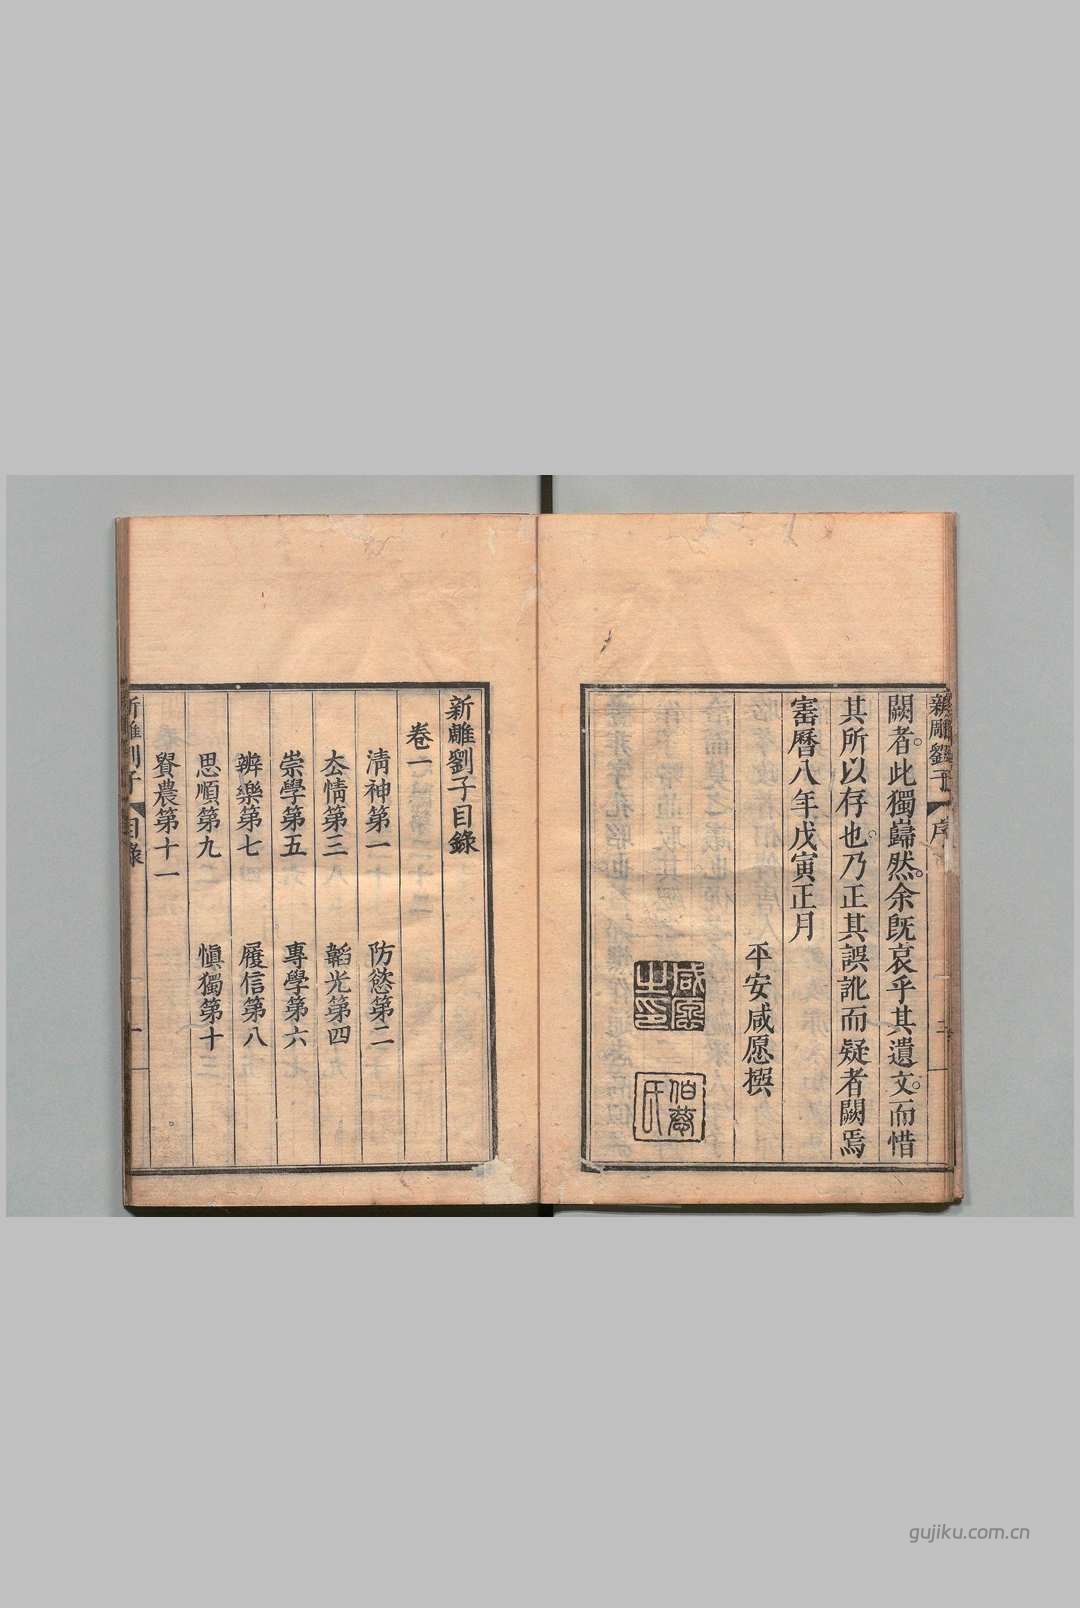 新雕劉子 序 二
闕者。此獨巋然。余既哀乎其遺文。而惜
其所以存也。乃正其誤訛而疑者闕焉
寶曆八年戊寅正月
平安咸愿撰
咸愿之印
伯
氏
新雕劉子目錄
卷一
清神第一 防慾第二
去情第三 韜光第四
崇學第五 專學第六
辨樂第七 履信第八
思順第九 慎獨第十
貴農第十一
新雕劉子 目錄 一
gujiku.com.cn